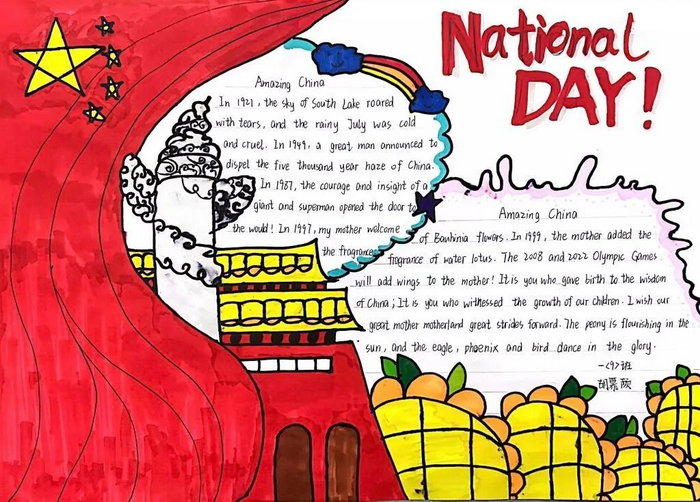 National
DAY!
Amazing China
In 1921, the sky of South Lake roared
with tears, and the rainy July was cold
and cruel. In 1949, a great man announced to
dispel the five thousand year haze of China.
In 1987, the courage and insight of a
giant and superman opened the door to
the would! In 1997, my mother welcome
the fragrance
Amazing China
of Bauhinia flowers. In 1999, the mother added the
fragrance of water lotus. The 2008 and 2022 Olympic Games
will add wings to the mother! It is you who gave birth to the wisdom
of China; It is you who withessed the growth of our children. I wish our
great mother motherland great strides forward. The peony is flourishing in the
sun, and the eagle, phoenix and bird dance in the glory.
一<9>班
胡